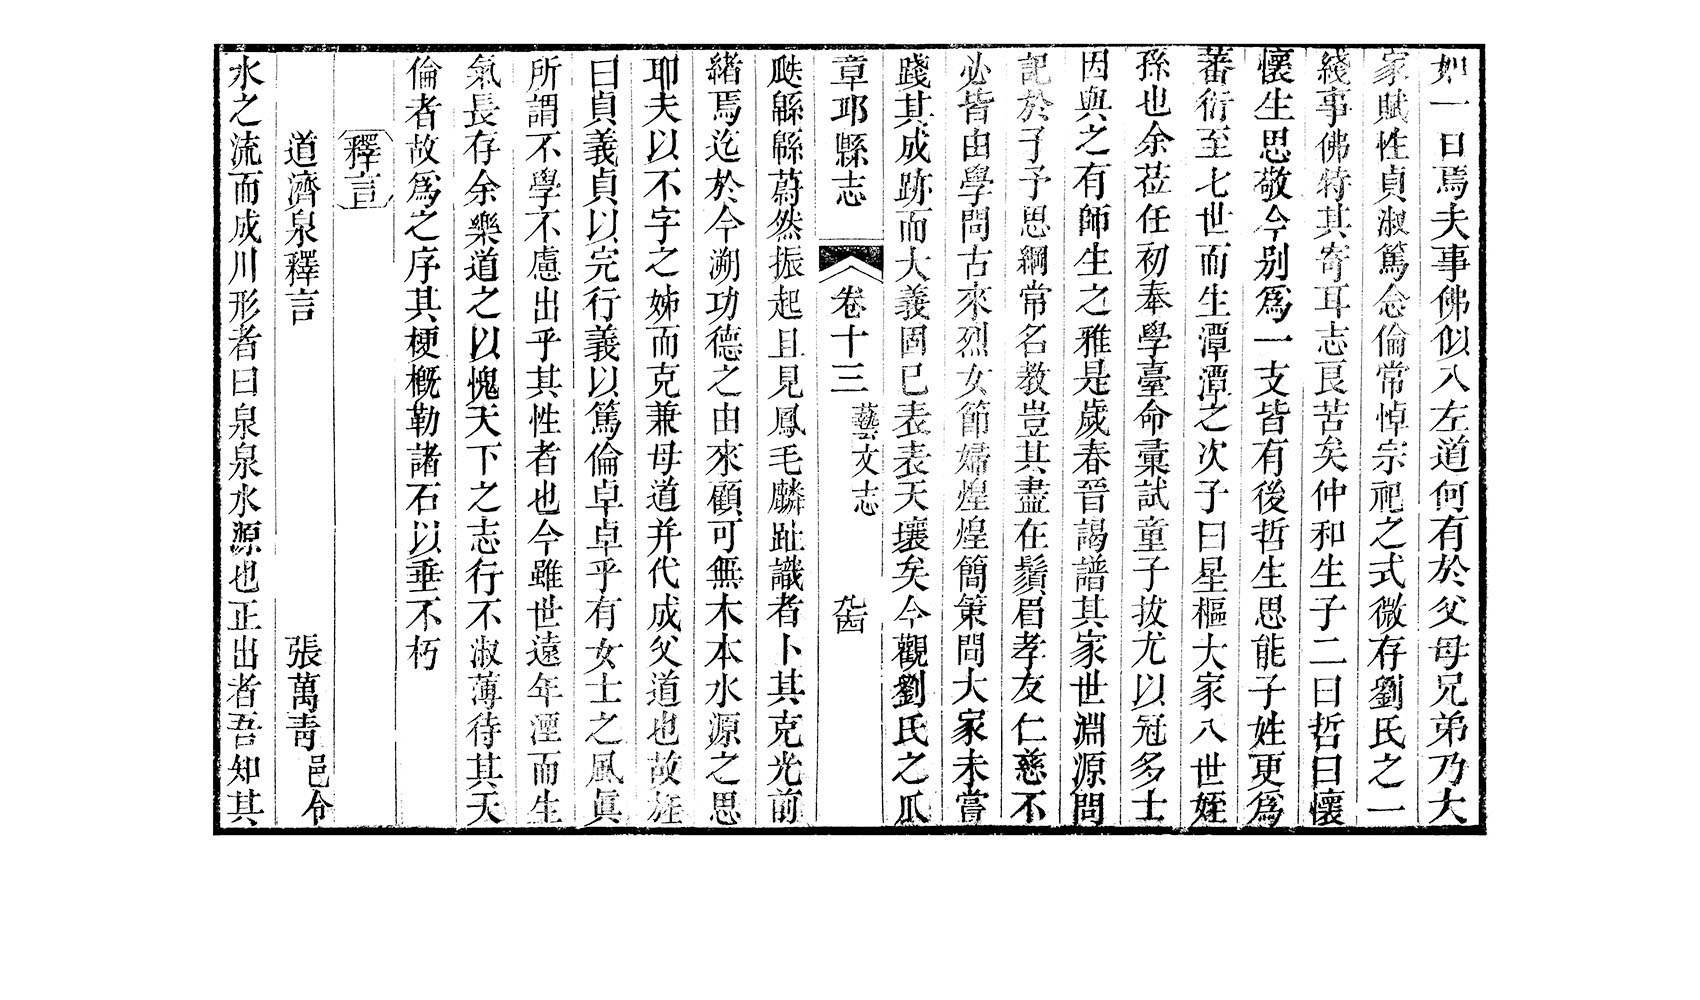 如一日焉夫事佛似入左道何有於父母兄弟乃大
家賦性貞淑篤念倫常悼宗祀之式微存劉氏之一
綫事佛特其寄耳志良苦矣仲和生子二曰哲曰懷
懷生思敬今别爲一支皆有後哲生思能子姓更爲
蕃衍至七世而生潭潭之次子曰星樞大家八世姪
孫也余莅任初奉學臺命彙試童子拔尤以冠多士
因與之有師生之雅是歲春晉謁譜其家世淵源問
記於予予思綱常名教豈其盡在鬚眉孝友仁慈不
必皆由學問古來烈女節婦煌煌簡策間大家未嘗
踐其成跡而大義固已表表天壤矣今觀劉氏之瓜
章邱縣志
卷十三
藝文志
九百
瓞緜緜蔚然振起且見鳳毛麟趾識者卜其克光前
緒焉迄於今溯功德之由來顧可無木本水源之思
耶夫以不字之姊而克兼母道并代成父道也故旌
曰貞義貞以完行義以篤倫卓卓乎有女士之風眞
所謂不學不慮出乎其性者也今雖世遠年湮而生
氣長存余樂道之以愧天下之志行不淑薄待其天
倫者故爲之序其梗概勒諸石以垂不朽
釋言
道濟泉釋言
張萬青 邑令
水之流而成川形者曰泉泉水源也正出者吾知其